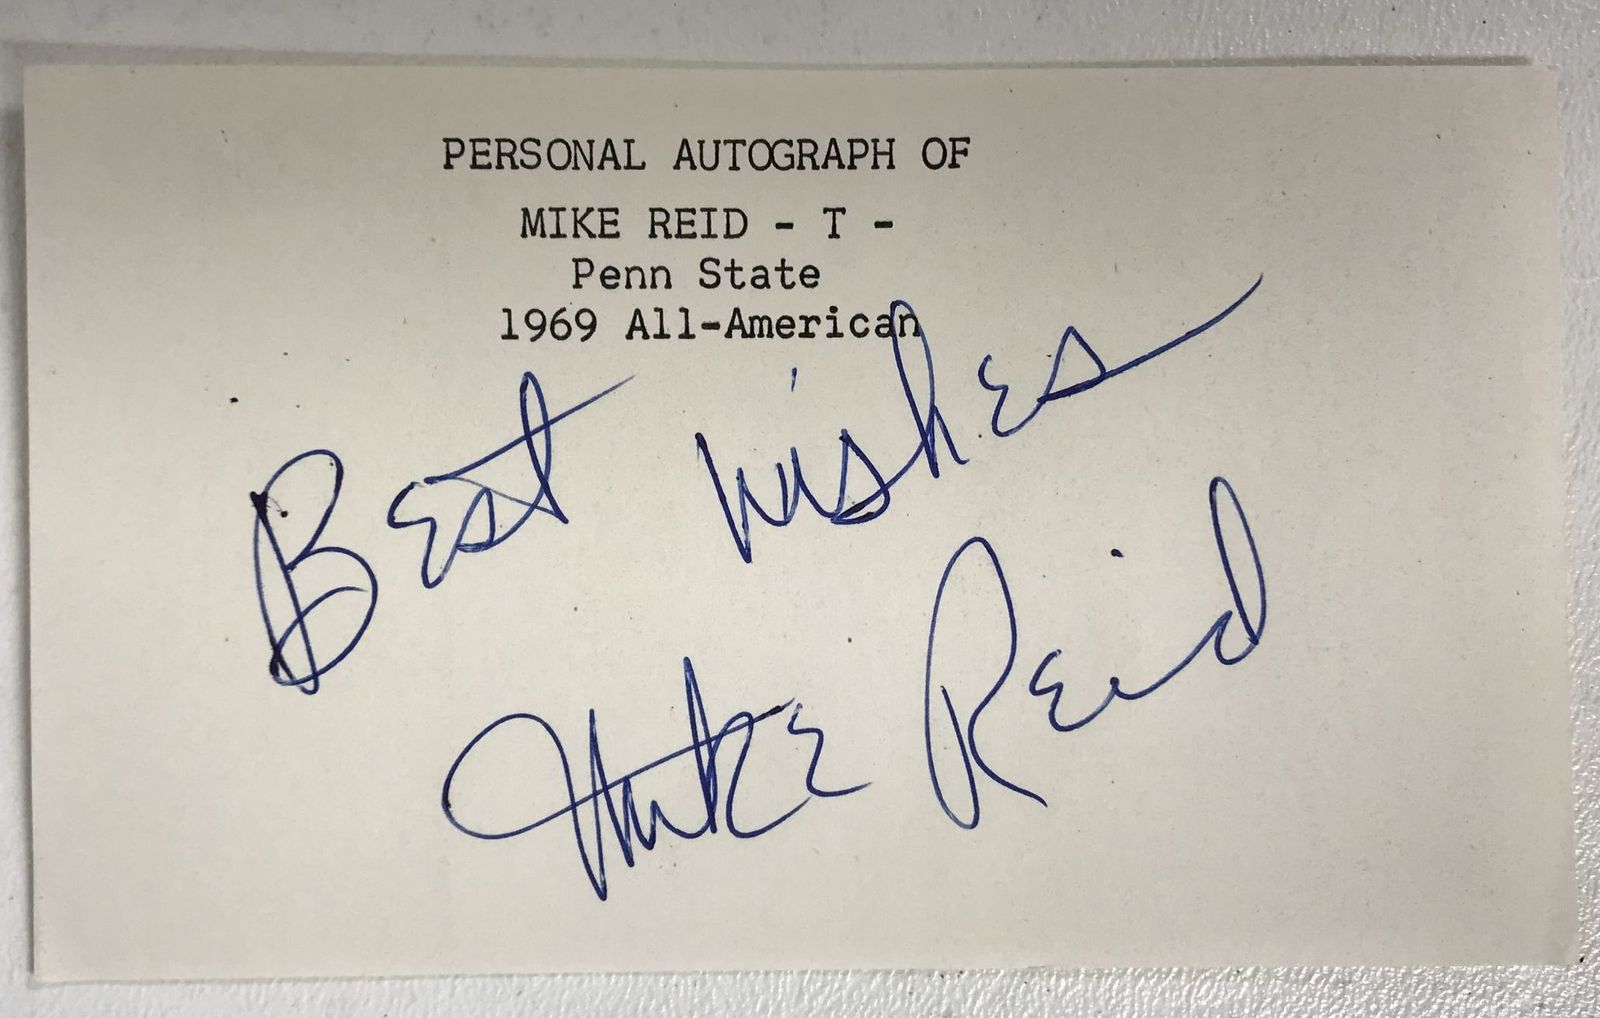 PERSONAL AUTOGRAPH OF
MIKE REID - T -
Penn State
1969 All-American
Best Wishes
Mike Reid